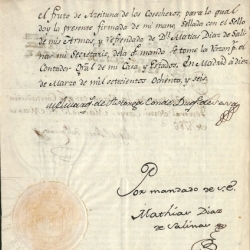 el fruto de Azeituna de los Cosecheros, para lo qual
doy la presente firmada de mi mano, sellada con el Sello
de mis Armas, y refrendada de Dn. Mathias Diaz de Sali-
nas mi Secretario, de la q. mando se tome la razon p. el
Contador Gral de mi Casa, y Estados. En Madrid a diez
de Marzo de mil setecientos Ochenta, y seis.
Conde, Duq.
Por mandado de S.E.
Mathias Diaz
de Salinas